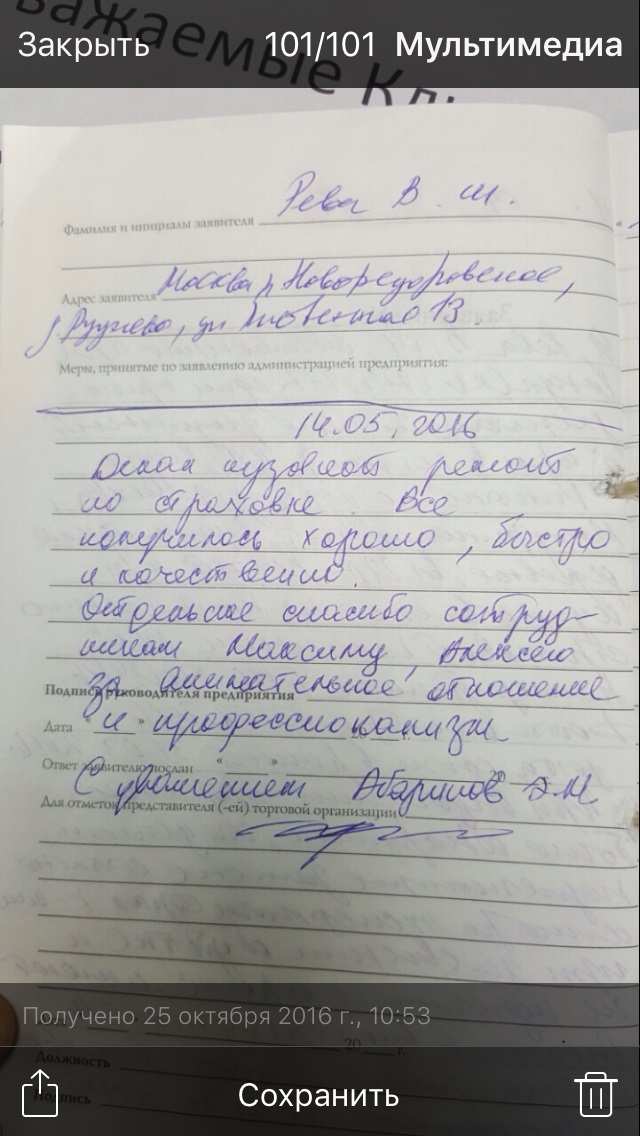 Закрыть 101/101 Мультимедиа
важаемые Кл
Рева В. Ш.
Фамилия и инициалы заявителя
Адрес заявителя Москва п. Новофедоровское,
ул 13
Меры, принятые по заявлению администрацией предприятия:
14.05.2016
Делал кузовной ремонт
по страховке. Все
получилось хорошо, быстро
и качественно.
Отдельное спасибо сотруд-
никам Максиму, Алексею
за внимательное отношение
Подпись руководителя предприятия
Дата " " и профессионализм.
Ответ заявителю послан " " 20
С уважением Абаринов Э.М
Для отметок представителя (-ей) торговой организации
Получено 25 октября 2016 г., 10:53
20 г.
Должность
Подпись
Сохранить